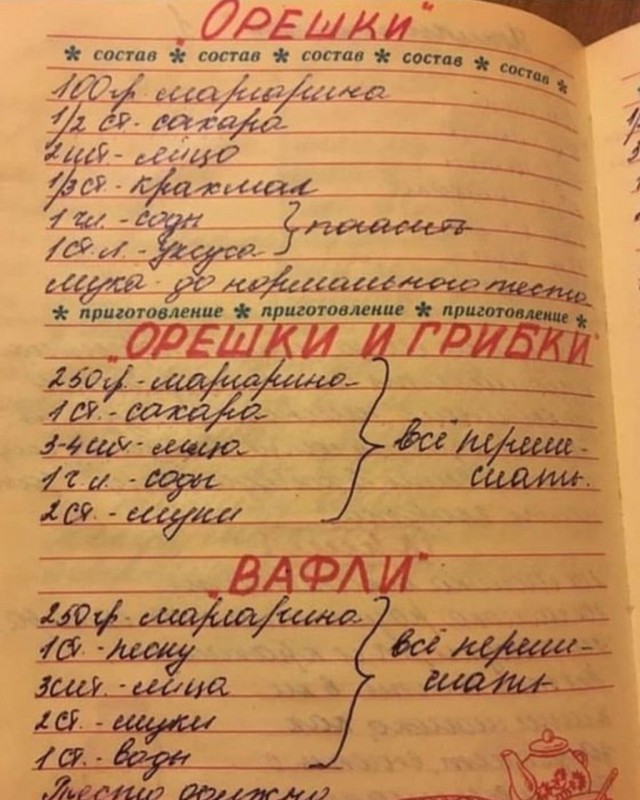 "ОРЕШКИ"
* состав * состав * состав * состав * состав *
100гр. маргарина
1/2 ст. - сахара
2шт - яйцо
1/3ст. - крахмал
1 чл. - соды } погасить
1ст.л. - уксуса
мука - до нормального теста
* приготовление * приготовление * приготовление *
"ОРЕШКИ И ГРИБКИ"
250гр. - маргарина
1ст. - сахара
3-4шт. - яйца
1 ч л. - соды
2ст. - муки
всё переме-
шать.
"ВАФЛИ"
250гр. - маргарина
1ст. - песку
3шт. - яйца
2ст. - муки
1ст. - воды
всё переме-
шать.
Тесто должно